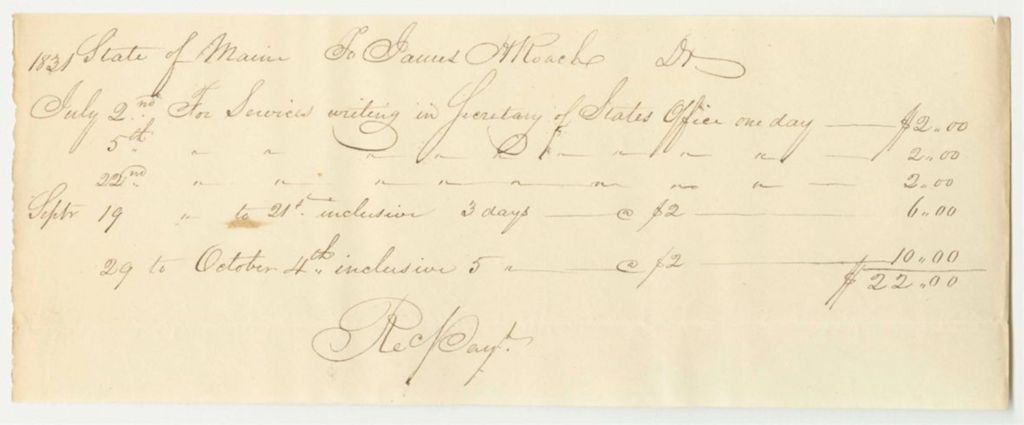 1831 State of Maine To James H Roach Dr
July 2nd For Services writing in Secretary of States Office one day — $2.00
5th " " " " " " " " " — 2.00
22nd " " " " " " " " — 2.00
Septr 19 " to 21st inclusive 3 days — @ $2 — 6.00
29 to October 4th inclusive 5 " — @ $2 — 10.00
$22.00
Rec Payt.